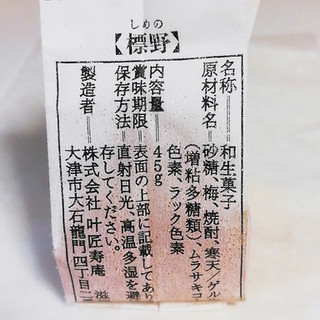 しめの
【標野】
名称 和生菓子
原材料名 砂糖、梅、焼酎、寒天/ゲル
(増粘多糖類)、ムラサキコ
色素、ラック色素
内容量 45g
賞味期限 表面の上部に記載してあり
保存方法 直射日光、高温多湿を避
存してください。
製造者 株式会社 叶匠寿庵
大津市大石龍門四丁目二